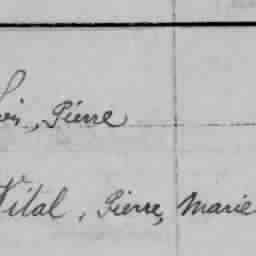 Pierre
Vital, Pierre, Marie